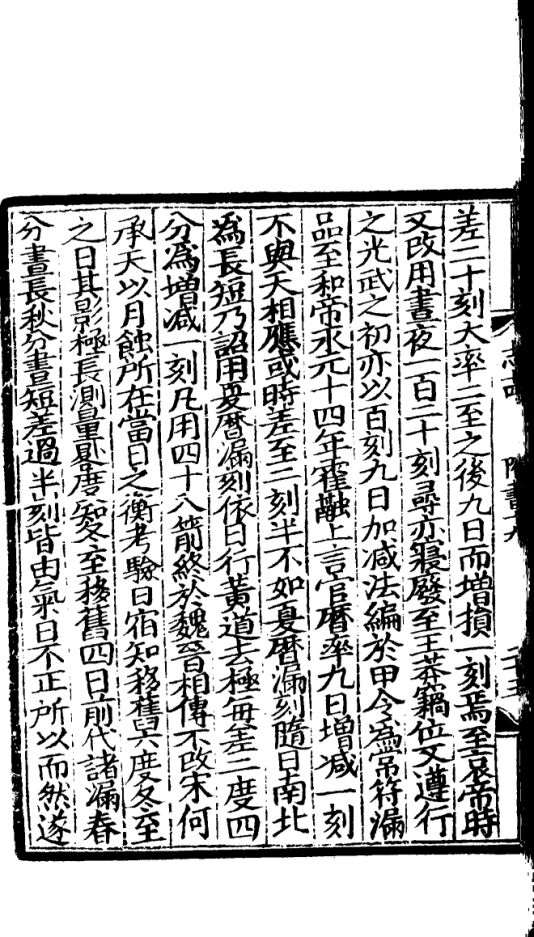 差二十刻大率二至之後九日而增損一刻焉至哀帝時
又改用晝夜一百二十刻尋亦寢廢至王莽竊位又遵行
之光武之初亦以百刻九日加减法編於甲令為常符漏
品至和帝永元十四年霍融上言官曆率九日增减一刻
不與天相應或時差至二刻半不如夏曆漏刻隨日南北
為長短乃詔用夏曆漏刻依日行黄道去極每差二度四
分為增减一刻凡用四十八箭終於魏晉相傳不改宋何
承天以月蝕所在當日之衡考驗日宿知移舊六度冬至
之日其影極長測量晷度知冬至移舊四日前代諸漏春
分晝長秋分晝短差過半刻皆由氣日不正所以而然遂